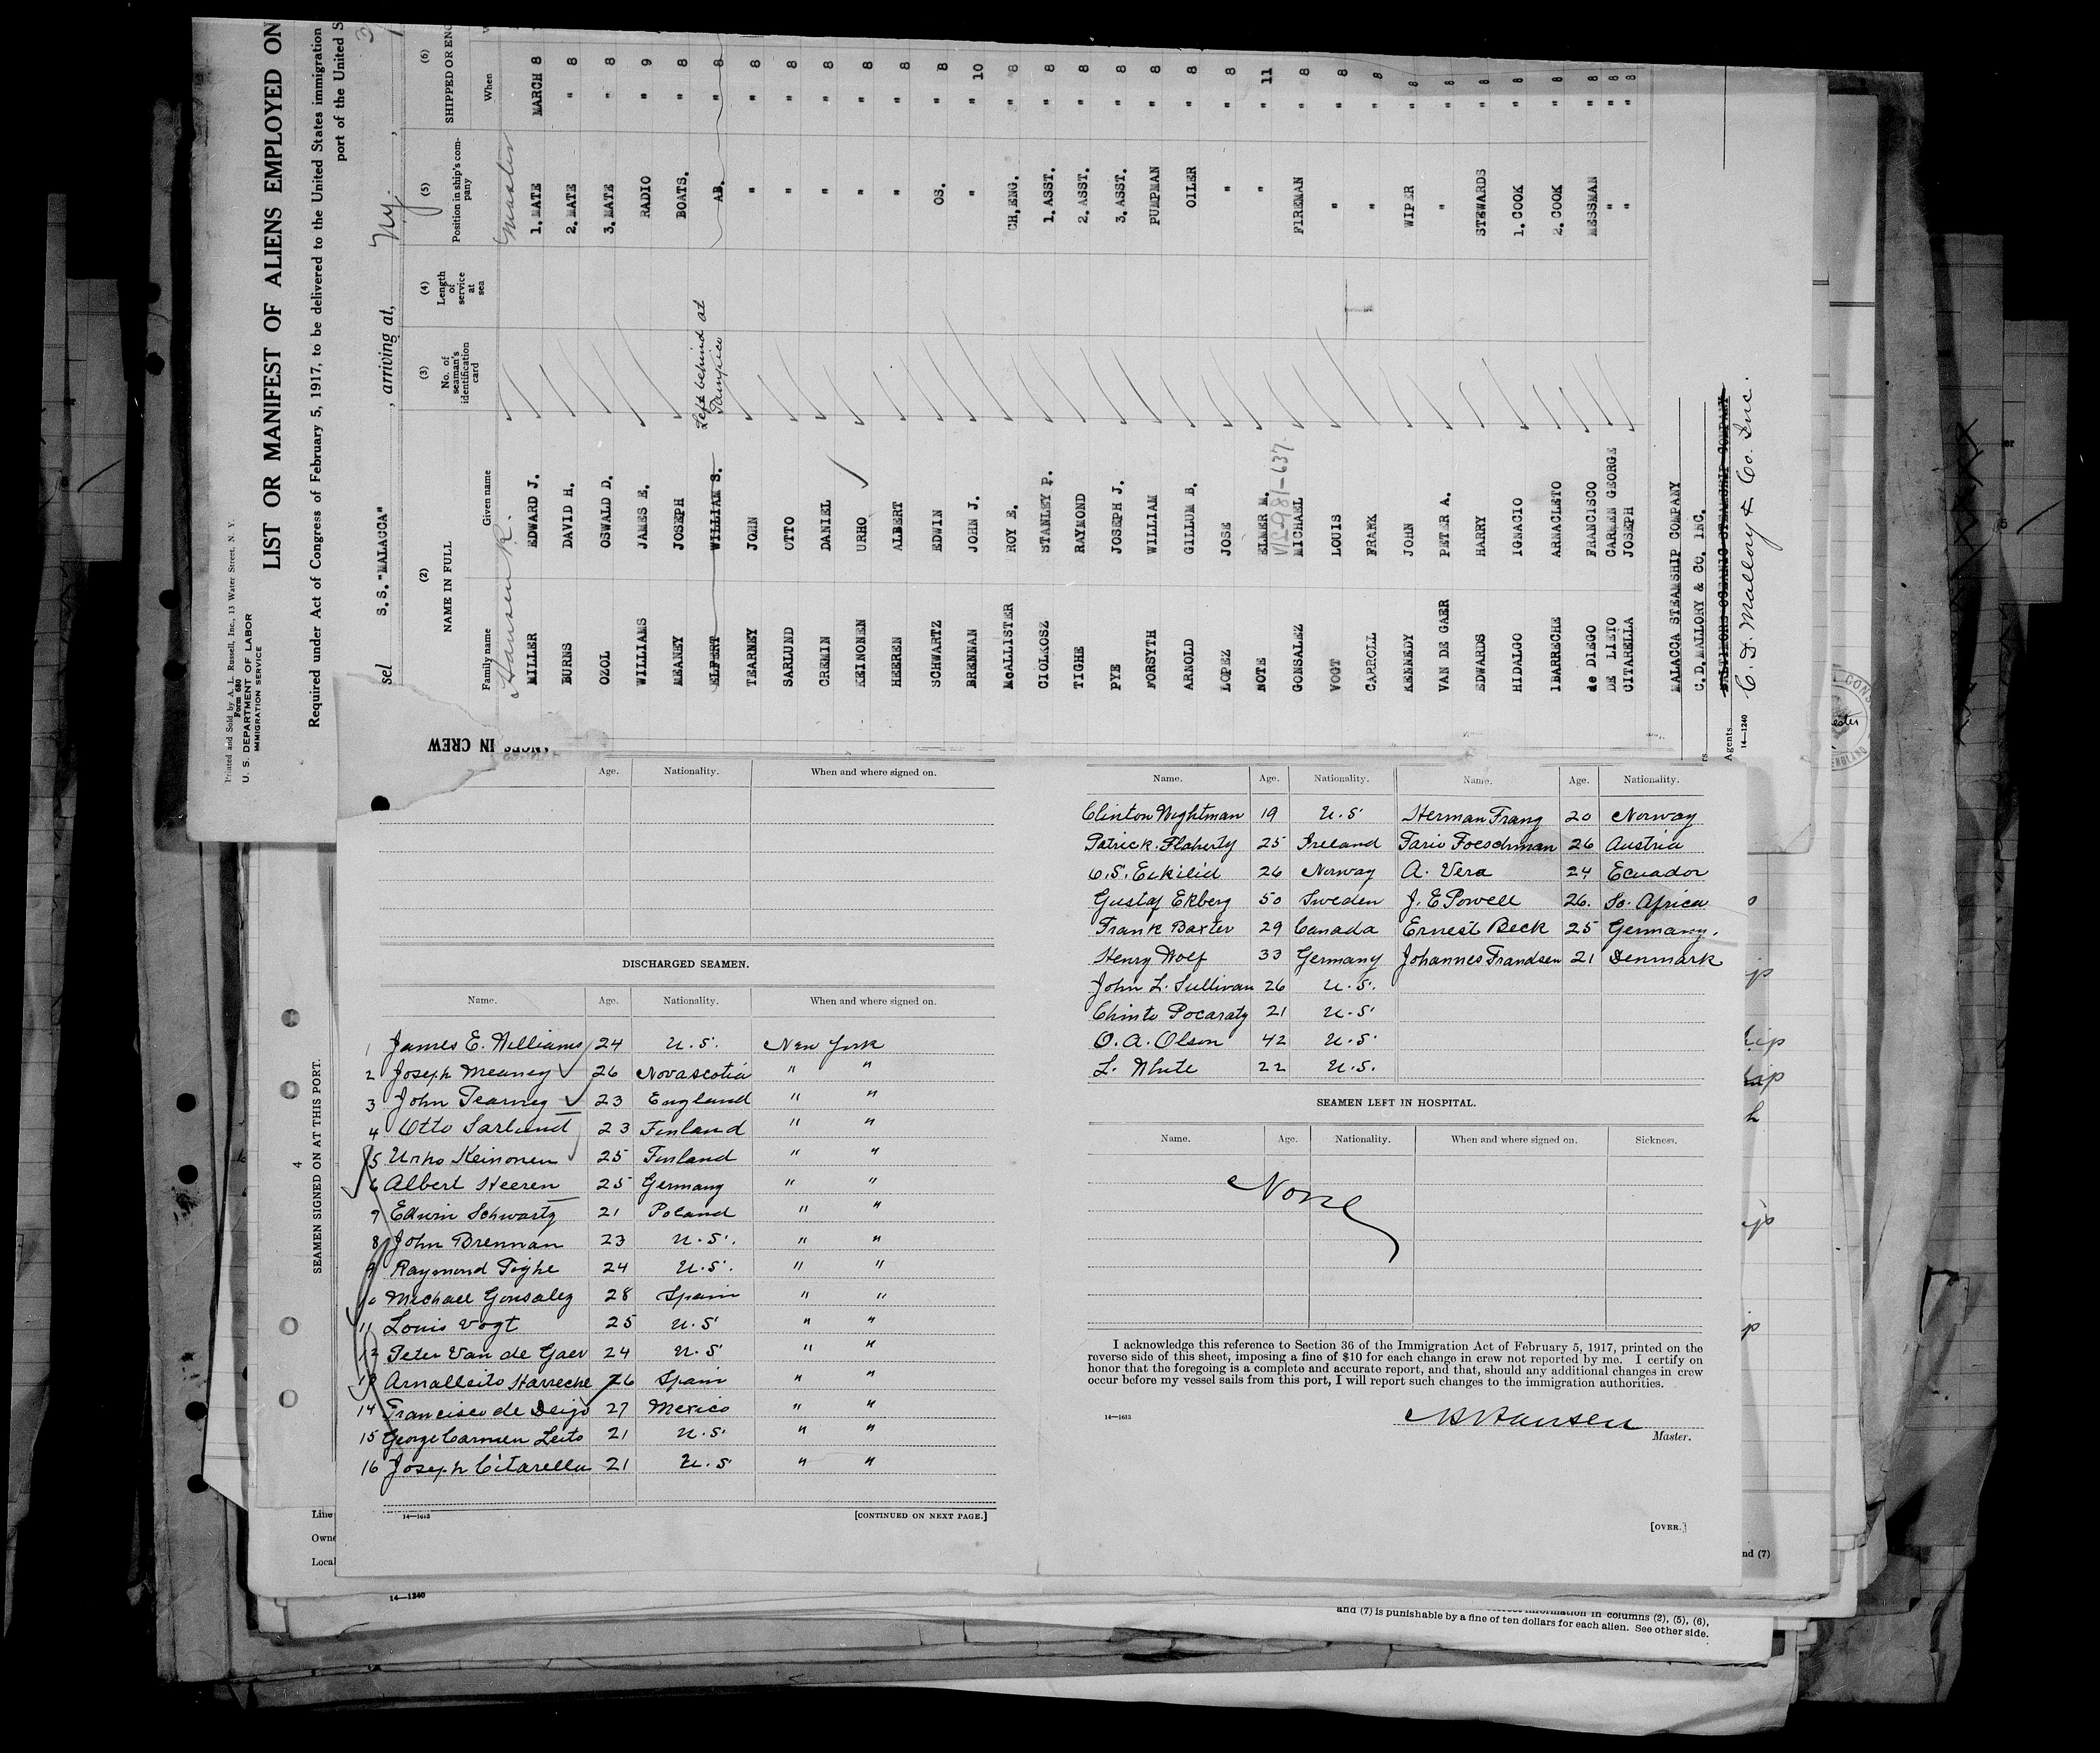 Printed and Sold by A. L. Russell, Inc., 13 Water Street, N. Y.
Form 680
U. S. DEPARTMENT OF LABOR
IMMIGRATION SERVICE
LIST OR MANIFEST OF ALIENS EMPLOYED ON
Required under Act of Congress of February 5, 1917, to be delivered to the United States immigration
port of the United S
sel S.S. "MALACCA" , arriving at, Ny. ,
(2) (3) (4) (5) (6)
NAME IN FULL No. of seaman's identification card Length of service at sea Position in ship's company SHIPPED OR ENG
Family name Given name When
Hansen R. Master
MILLER EDWARD J. 1. MATE MARCH 8
BURNS DAVID H. 2. MATE " 8
OZOL OSWALD D. 3. MATE " 8
WILLIAMS JAMES E. RADIO " 9
MEANEY JOSEPH BOATS. " 8
ELPERT WILLIAM S. Left behind at Tampico AB. " 8
TEARNEY JOHN " " 8
SARLUND OTTO " " 8
CREMIN DANIEL " " 8
KEINONEN URHO " " 8
HEEREN ALBERT " " 8
SCHWARTZ EDWIN OS. " 8
BRENNAN JOHN J. " " 10
McALLISTER ROY E. CH, ENG. " 8
CIOLKOSZ STANLEY P. 1. ASST. " 8
TIGHE RAYMOND 2. ASST. " 8
PYE JOSEPH J. 3. ASST. " 8
FORSYTH WILLIAM PUMPMAN " 8
ARNOLD GILLUM B. OILER " 8
LOPEZ JOSE " " 8
NOTE ELMER M. " " 11
GONSALEZ MICHAEL FIREMAN " 8
VOGT LOUIS " " 8
CARROLL FRANK " " 8
KENNEDY JOHN WIPER " 8
VAN DE GAER PETER A. " " 8
EDWARDS HARRY STEWARDS " 8
HIDALGO IGNACIO 1. COOK " 8
IBARRECHE ARNACLETO 2. COOK " 8
de DIEGO FRANCISCO MESSMAN " 8
DE LIETO CARMEN GEORGE " " 8
CITARELLA JOSEPH " " 8
MALACCA STEAMSHIP COMPANY
C. D. MALLORY & CO. INC.
BALTIMORE OCEANIC STEAMSHIP COMPANY
Agents C. D. Mallory & Co. Inc.
14—1240
IN CREW
Age. Nationality. When and where signed on.
DISCHARGED SEAMEN.
Name. Age. Nationality. When and where signed on.
1 James E. Williams 24 U.S. New York
2 Joseph Meaney 26 Novascotia " "
3 John Tearney 23 England " "
4 Otto Sarlund 23 Finland " "
5 Urho Keinonen 25 Finland " "
6 Albert Heeren 25 Germany " "
7 Edwin Schwartz 21 Poland " "
8 John Brennan 23 U.S. " "
9 Raymond Tighe 24 U.S. " "
10 Michael Gonsalez 28 Spain " "
11 Louis Vogt 25 U.S. " "
12 Peter Van de Gaer 24 U.S. " "
13 Arnalleito Harreche 26 Spain " "
14 Francisco de Deigo 27 Mexico " "
15 George Carmen Leito 21 U.S. " "
16 Joseph Citarella 21 U.S " "
14—1613
[CONTINUED ON NEXT PAGE.]
Name. Age. Nationality. Name. Age. Nationality.
Clinton Wightman 19 U.S. Herman Frang 20 Norway
Patrick Flaherty 25 Ireland Foeschman 26 Austria
O.S. Eikilid 26 Norway A. Vera 24 Ecuador
Gustaf Ekberg 50 Sweden J. E Powell 26. So. Africa
Frank Baxter 29 Canada Ernest Beck 25 Germany.
Henry Wolf 33 Germany Johannes Frandsen 21 Denmark
John L. Sullivan 26 U.S.
Chinto Pocaraty 21 U.S.
O. A. Olson 42 U.S.
L. White 22 U.S.
SEAMEN LEFT IN HOSPITAL.
Name. Age. Nationality. When and where signed on. Sickness.
None
I acknowledge this reference to Section 36 of the Immigration Act of February 5, 1917, printed on the
reverse side of this sheet, imposing a fine of $10 for each change in crew not reported by me. I certify on
honor that the foregoing is a complete and accurate report, and that, should any additional changes in crew
occur before my vessel sails from this port, I will report such changes to the immigration authorities.
14—1613
Hansen
Master.
[OVER.]
4
SEAMEN SIGNED ON AT THIS PORT.
Line
Owne
Local
nd (7)
14—1240
information in columns (2), (5), (6),
and (7) is punishable by a fine of ten dollars for each alien. See other side.